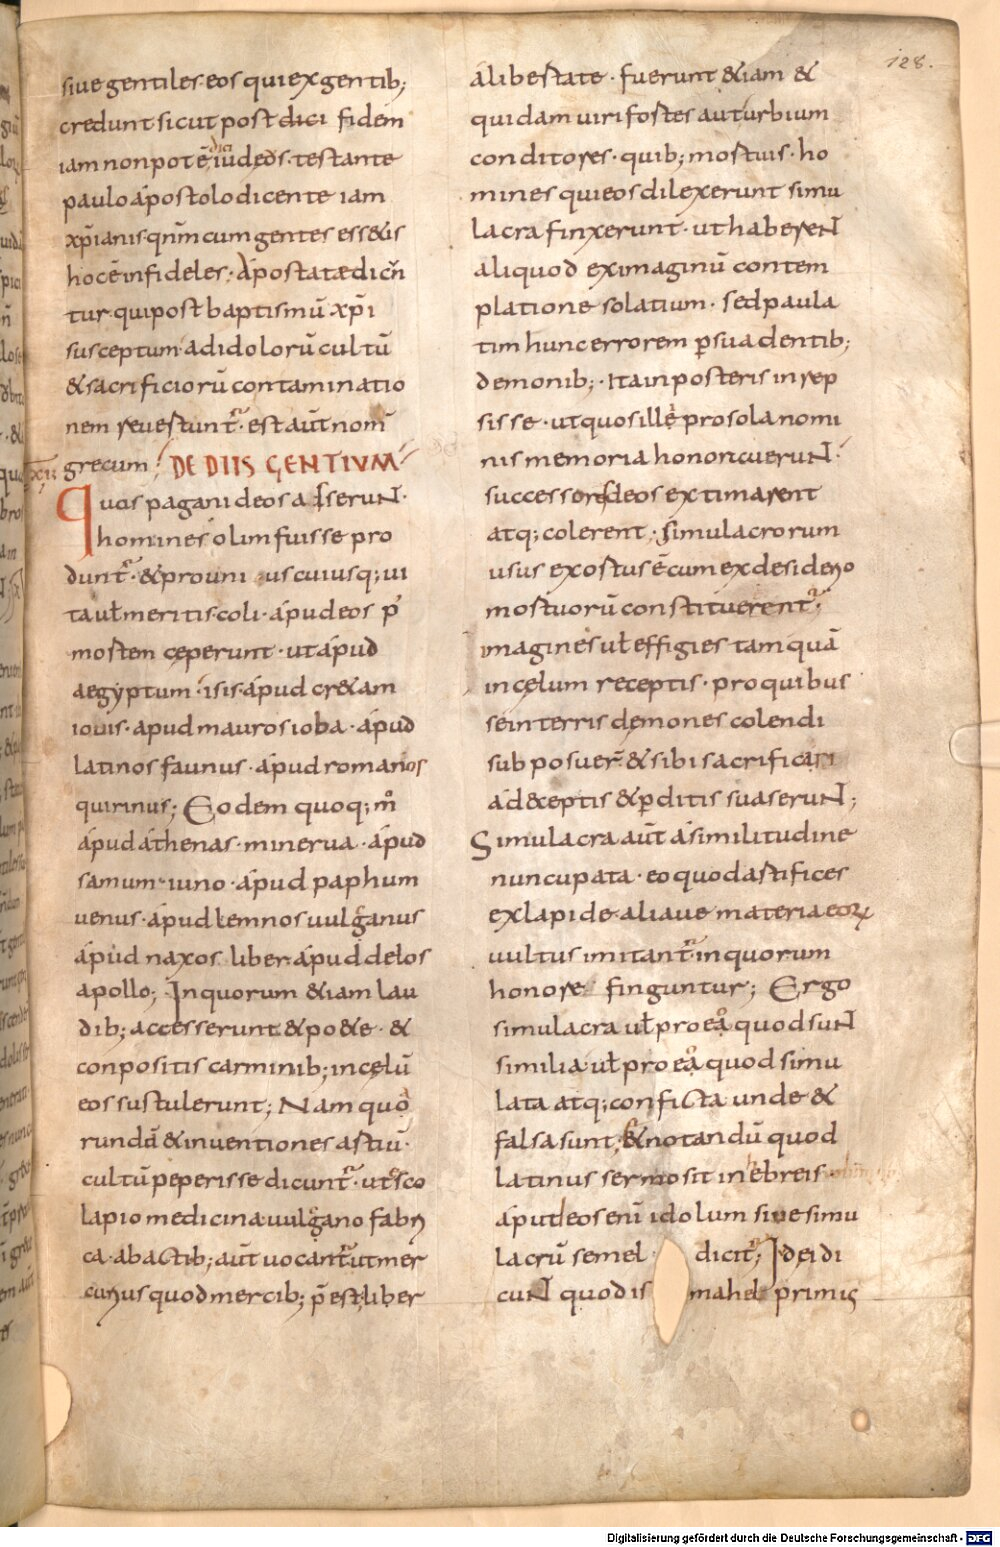 siue gentiles· eos qui ex gentib;
credunt sicut post dici fidem
iam non potē dici iudeos· testante
paulo apostolo dicente iam
xp̄ianis· qn̄m cum gentes ess&is
hoc ē infideles; Apostatae dicū
tur· qui post baptismū xp̄i
susceptum· ad idolorū cultū
& sacrificiorū contaminatio
nem reuertunt̄· est aūt nom̄
grecum; DE DIIS GENTIUM
xii
Quos pagani deos asserunt·
homines olim fuisse pro
dunt̄· & pro uni us cuiusq; ui
ta ul̄ meritis· coli· apud eos p̄
mortem ceperunt· ut apud
aegyptum· isis· apud cr&am
iouis· apud mauros ioba· apud
latinos faunus· apud romanos
quirinus; Eodem quoq; m̊
apud athenas· minerua· apud
samum· iuno· apud paphum
uenus· apud lemnos uulganus
apud naxos liber· apud delos
apollo; In quorum &iam lau
dib; accesserunt & po&e· &
conpositis carminib; in celū
eos sustulerunt; Nam quo
rundā & inuentiones artiū·
cultū peperisse dicunt̄· ut sco
lapio medicina uulgano fabri
ca· ab actib; aūt uocant̄ ut mer
curius quod mercib; p̄ est; liber
128.
a libertate· fuerunt &iam &
quidam uiri fortes aut urbium
conditores· quib; mortuis· ho
mines qui eos dilexerunt simu
lacra finxerunt· ut haberent
aliquod ex imaginū contem
platione solatium· sed paula
tim hunc errorem p̄suadentib;
demonib;· Ita in posteris inrep
sisse· ut quos ille pro sola nomi
nis memoria hononcuerunt·
successores deos extimarent
atq; colerent; Simulacrorum
usus exortus ē cum ex desiderio
mortuorū constituerent̄;
imagines ul̄ effigies tamquā
in celum receptis· pro quibus
se in terris demones colendi
subposuer̄ & sibi sacrificari
a deceptis & p̄ditis suaserunt;
Simulacra aūt a similitudine
nuncupata· eo quod artifices
ex lapide aliaue materia eorꝝ
uultus imitant̄ in quorum
honore finguntur; Ergo
simulacra ul̄ pro eo quod sunt
similia· ul̄ pro eo quod simu
lata atq; conficta unde &
falsa sunt; & notandū quod
latinus sermo sit in hebreis
aput eos eni idolum siue simu
lacrū semel dicit̄; Id ei di
cunt quod is mahel primis
Digitalisierung gefördert durch die Deutsche Forschungsgemeinschaft - DFG